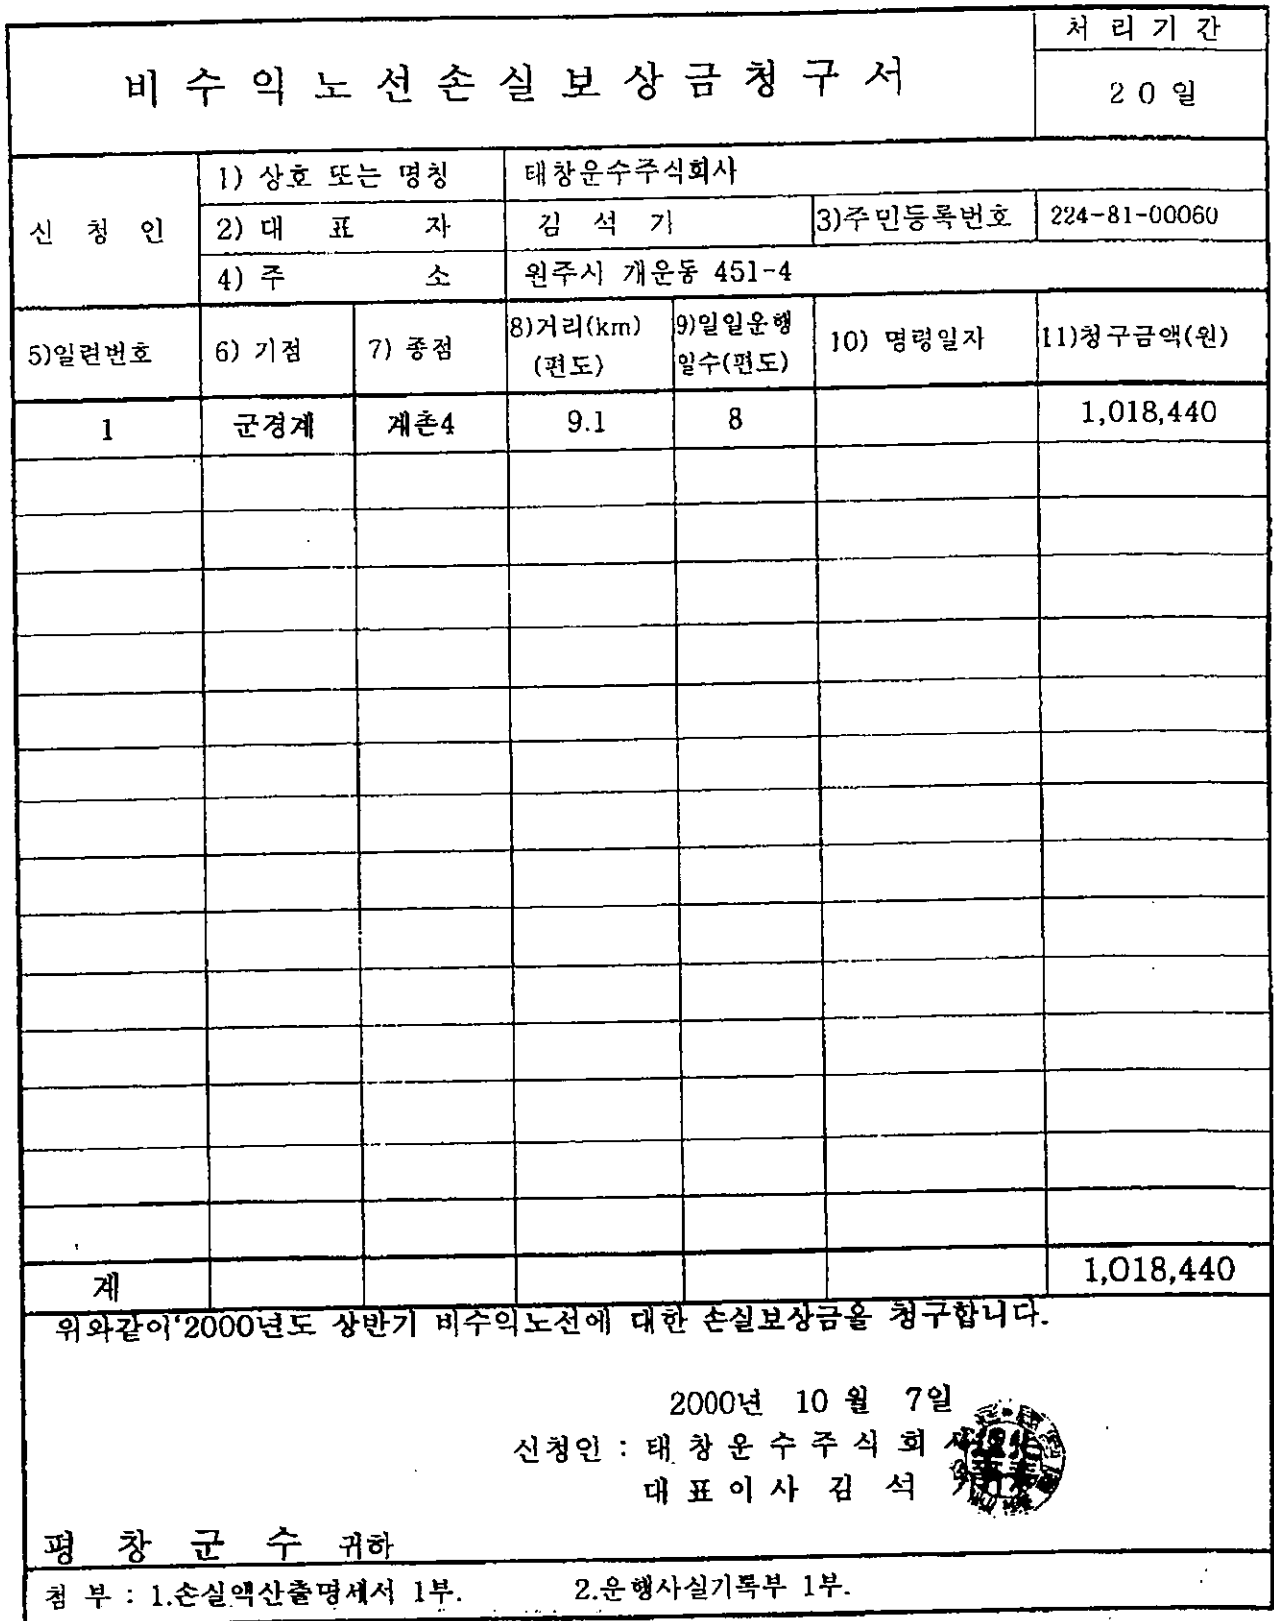 처 리 기 간
비 수 익 노 선 손 실 보 상 금 청 구 서
2 0 일
신 청 인
1) 상호 또는 명칭
태창운수주식회사
2) 대 표 자
김 석 기
3)주민등록번호
224-81-00060
4) 주 소
원주시 개운동 451-4
5)일련번호
6) 기점
7) 종점
8)거리(km)
(편도)
9)일일운행
일수(편도)
10) 명령일자
11)청구금액(원)
1
군경계
계촌4
9.1
8
1,018,440
계
1,018,440
위와같이'2000년도 상반기 비수익노선에 대한 손실보상금을 청구합니다.
2000년 10 월 7일
신청인 : 태 창 운 수 주 식 회 사
대 표 이 사 김 석 기
평 창 군 수 귀하
첨 부 : 1.손실액산출명세서 1부. 2.운행사실기록부 1부.